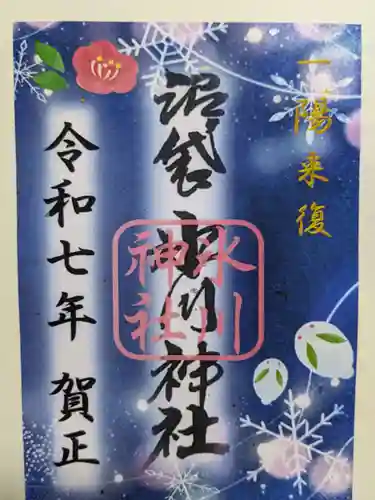 一陽来復
沼袋 氷川神社
氷川
神社
令和七年 賀正